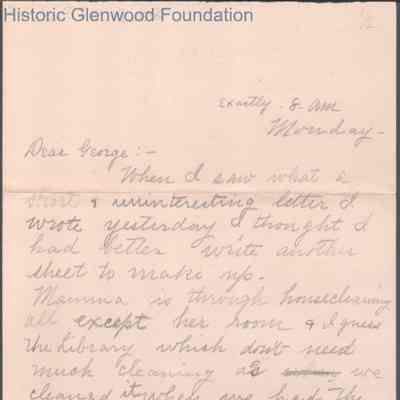 Historic Glenwood Foundation
1/2
Exactly - 8. am
Monday -
Dear George :-
When I saw what a
short & uninteresting letter I
wrote yesterday I thought I
had better write another
sheet to make up.
Mamma is through housecleaning
all except her room & I guess
the Library which don't need
much cleaning as we
cleaned it when we had the